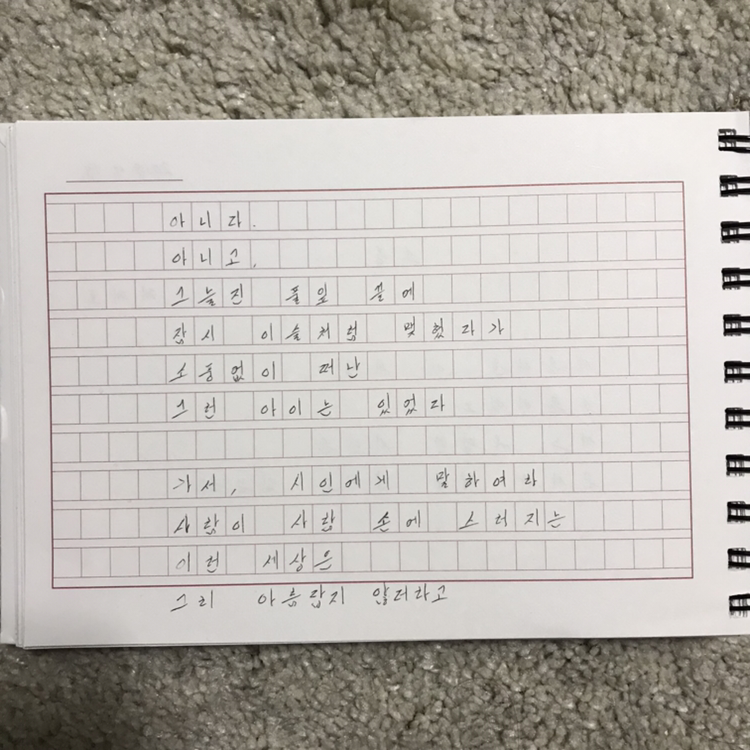 아니다.
아니고,
그늘진 풀잎 끝에
잠시 이슬처럼 맺혔다가
소풍없이 떠난
그런 아이는 있었다
가서, 시인에게 말하여라
사람이 사람 손에 스러지는
이런 세상은
그리 아름답지 않더라고